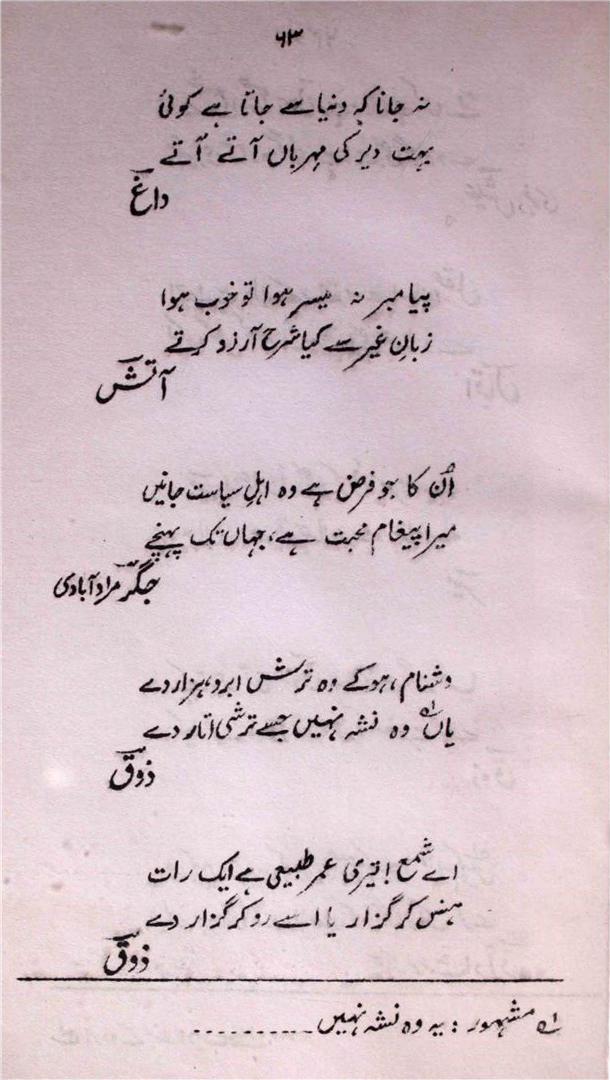 ۶۳
نہ جانا کہ دنیا سے جاتا ہے کوئی
بہت دیر کی مہرباں آتے آتے
داغؔ
پیامبر نہ میسر ہوا تو خوب ہوا
زبانِ غیر سے کیا شرح آرزو کرتے
آتشؔ
اُن کا جو فرض ہے وہ اہلِ سیاست جانیں
میرا پیغام محبت ہے، جہاں تک پہنچے
جگرؔ مرادآبادی
دشنام، ہو کے وہ ترش ابرو، ہزار دے
یاں؂۱ وہ نشہ نہیں جسے ترشی اتار دے
ذوقؔ
اے شمع! تیری عمر طبیعی ہے ایک رات
ہنس کر گزار یا اسے رو کر گزار دے
ذوقؔ
؂۱ مشہور: یہ وہ نشہ نہیں ..........